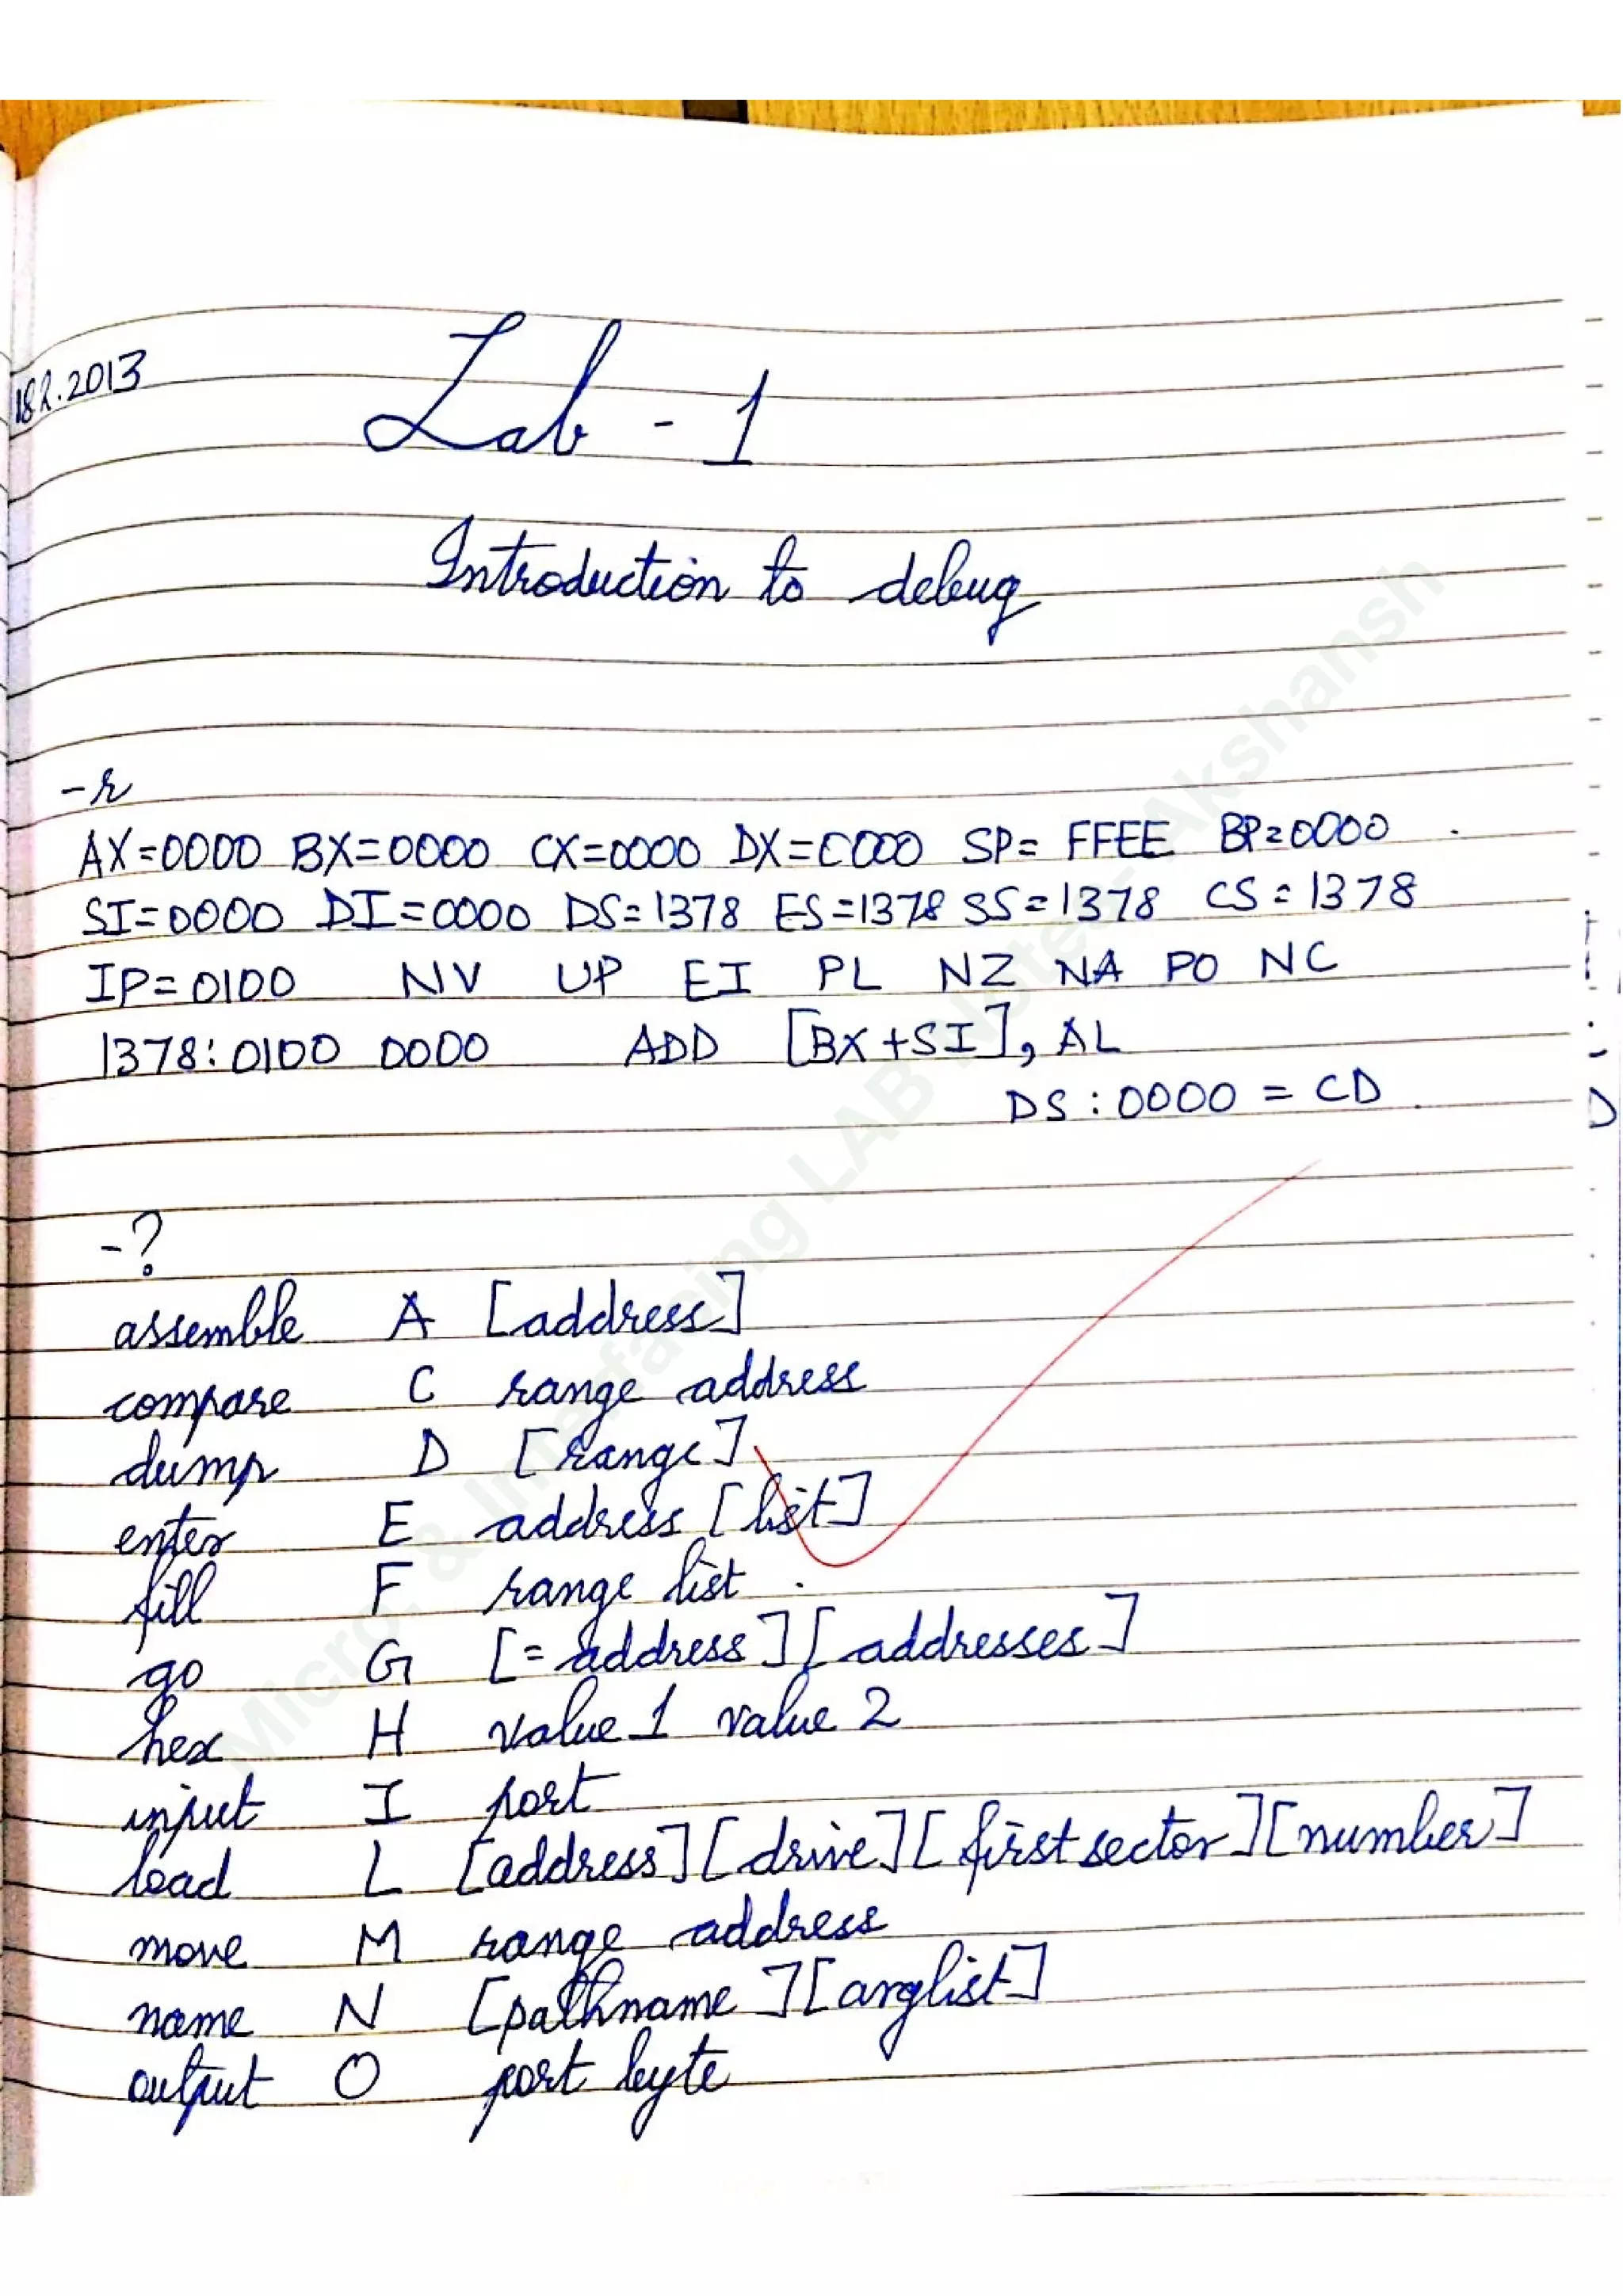 18.2.2013
Lab - 1
Introduction to debug
-r
AX=0000 BX=0000 CX=0000 DX=0000 SP= FFEE BP=0000
SI=0000 DI=0000 DS=1378 ES=1378 SS=1378 CS=1378
IP=0100 NV UP EI PL NZ NA PO NC
1378:0100 0000 ADD [BX+SI], AL
DS:0000 = CD
-?
assemble A [address]
compare C range address
dump D [range]
enter E address [list]
fill F range list
go G [=address][addresses]
hex H value1 value 2
input I port
load L [address][drive][first sector][number]
move M range address
name N [pathname][arglist]
output O port byte
LAB Notes-Akshansh